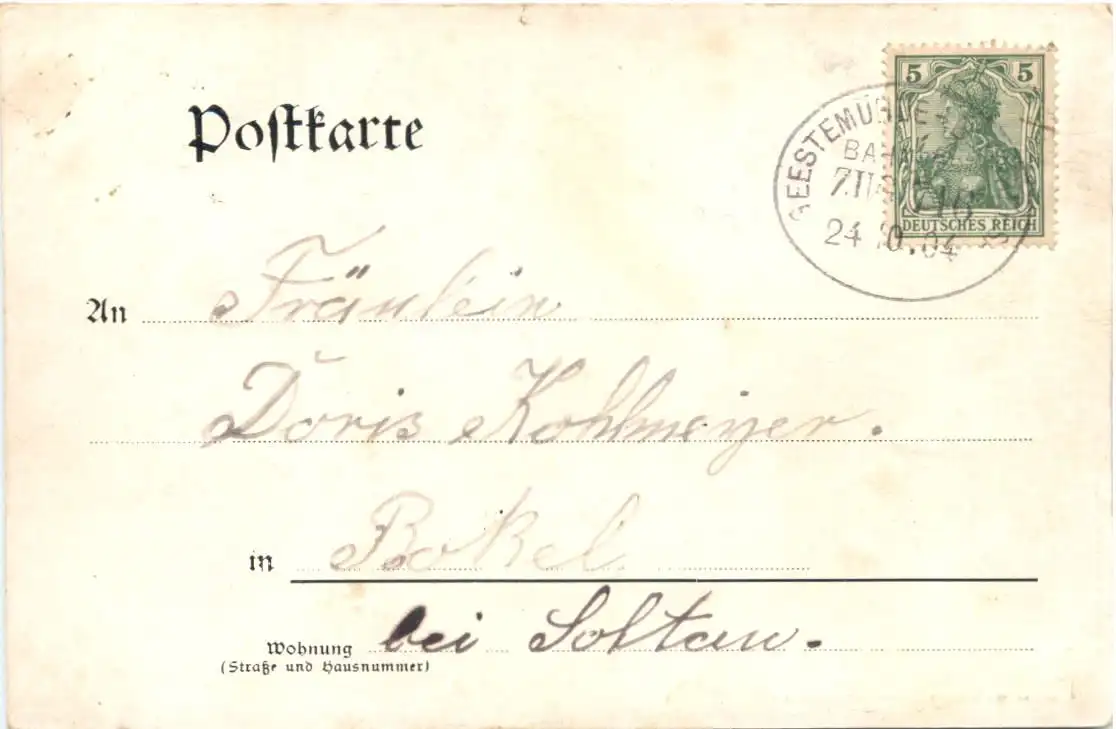 Postkarte
5 5
GEESTEMÜNDE
BAHN
ZUG 716
24 10.04
DEUTSCHES REICH
An Fräulein
Doris Kohlmeyer.
in Bokel
bei Soltau.
Wohnung
(Straße und Hausnummer)